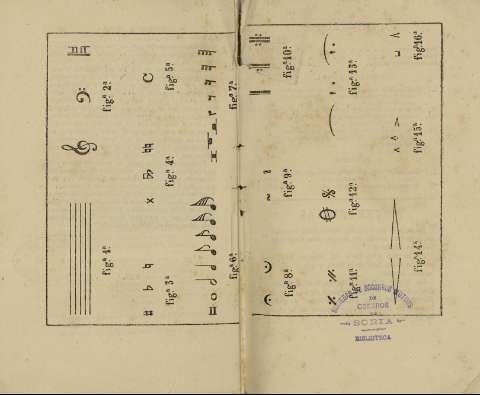 figª 1ª
figª 2ª
figª 3ª
figª 4ª
figª 5ª
figª 6ª
figª 7ª
figª 8ª
figª 9ª
figª 10ª
figª 11ª
figª 12ª
figª 13ª
figª 14ª
figª 15ª
figª 16ª
DE
SORIA
BIBLIOTECA